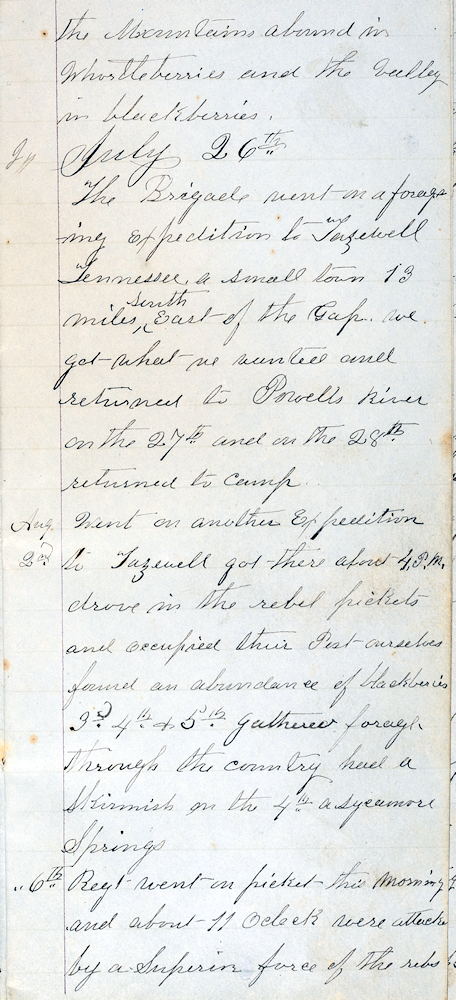 the Mountains abound in
Whortleberries and the valley
in blackberries.
July 26th
The Brigade went on a forag-
ing Expedition to Tazewell
Tennessee, a small town 13
miles, South East of the Gap. we
got what we wanted and
returned to Powells River
on the 27th and on the 28th
returned to camp.
Aug. Went on another Expedition
2nd to Tazewell got there about 4, P.M.
drove in the rebel pickets
and occupied their Post ourselves
found an abundance of blackberries
3d 4th & 5th gathered forage
through the country had a
Skirmish on the 4th a sycamore
Springs
" 6th Regt went on picket this morning
and about 11 Oclock were attacke
by a Superior force of the rebs